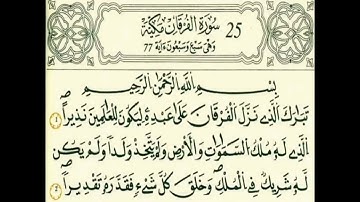 25 سُورَةُ الْفُرْقَانِ مَكِّيَّة
وَهِيَ سَبْعٌ وَسَبْعُونَ ءَايَة 77
بِسْمِ اللَّهِ الرَّحْمَٰنِ الرَّحِيمِ
تَبَارَكَ الَّذِي نَزَّلَ الْفُرْقَانَ عَلَىٰ عَبْدِهِ لِيَكُونَ لِلْعَالَمِينَ نَذِيرًا ۝١
الَّذِي لَهُ مُلْكُ السَّمَاوَاتِ وَالْأَرْضِ وَلَمْ يَتَّخِذْ وَلَدًا وَلَمْ يَكُن
لَّهُ شَرِيكٌ فِي الْمُلْكِ وَخَلَقَ كُلَّ شَيْءٍ فَقَدَّرَهُ تَقْدِيرًا ۝٢